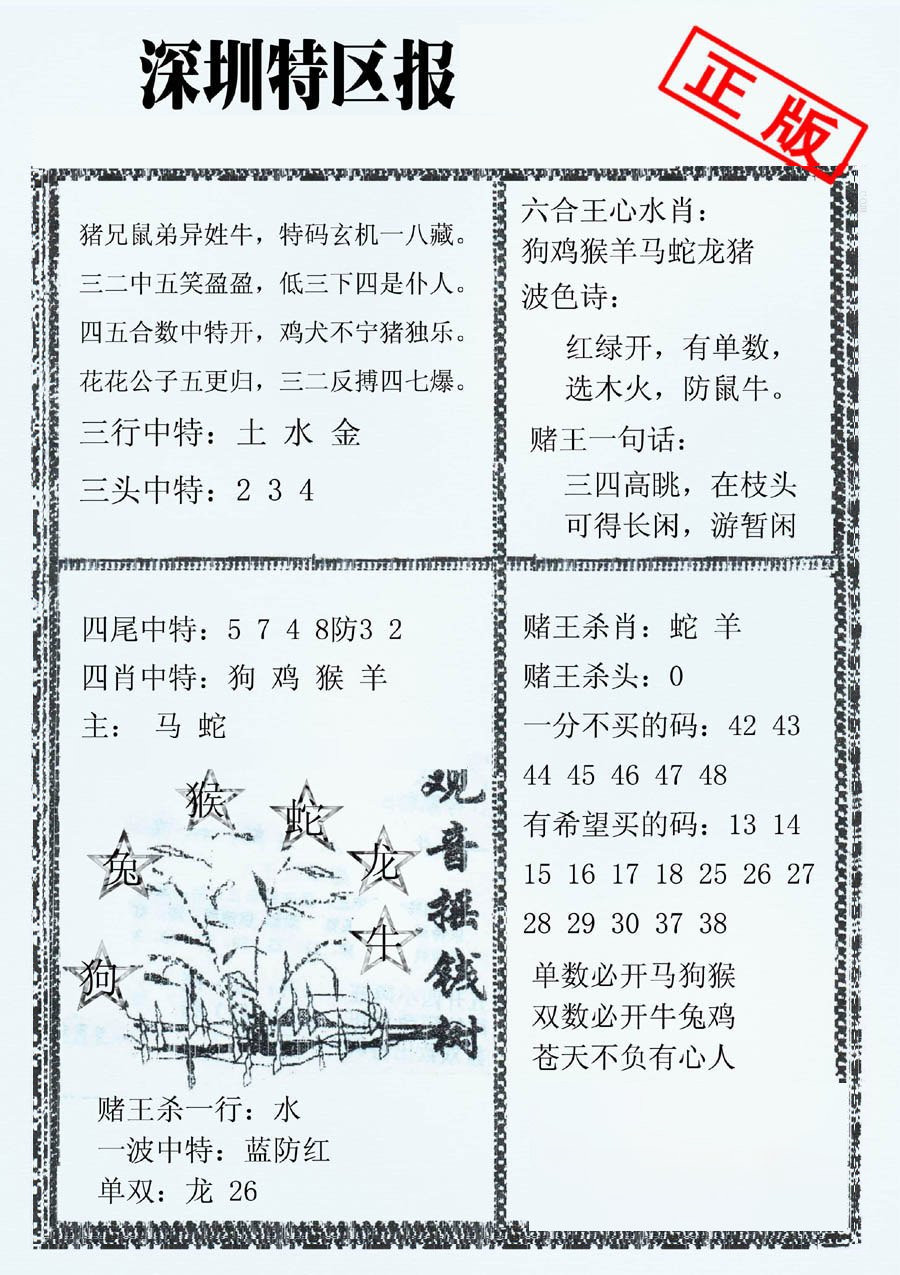 深圳特区报
正版
猪兄鼠弟异姓牛，特码玄机一八藏。
三二中五笑盈盈，低三下四是仆人。
四五合数中特开，鸡犬不宁猪独乐。
花花公子五更归，三二反搏四七爆。
三行中特：土 水 金
三头中特：2 3 4
六合王心水肖：
狗鸡猴羊马蛇龙猪
波色诗：
红绿开，有单数，
选木火，防鼠牛。
赌王一句话：
三四高眺，在枝头
可得长闲，游暂闲
四尾中特：5 7 4 8防3 2
四肖中特：狗 鸡 猴 羊
主： 马 蛇
猴
蛇
兔
龙
牛
狗
观音摇钱树
赌王杀一行：水
一波中特：蓝防红
单双：龙 26
赌王杀肖：蛇 羊
赌王杀头：0
一分不买的码：42 43
44 45 46 47 48
有希望买的码：13 14
15 16 17 18 25 26 27
28 29 30 37 38
单数必开马狗猴
双数必开牛兔鸡
苍天不负有心人